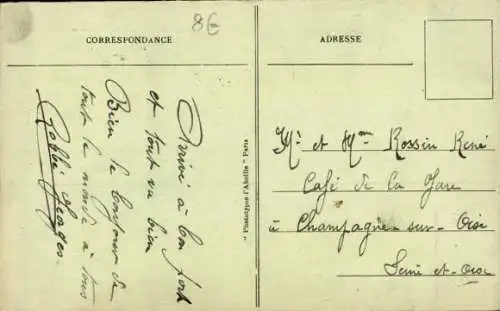 8€
CORRESPONDANCE
Arrivé à bon port
et tout va bien
Bien le bonjour de
tout le monde à tous
Georges
"Phototypie l'Abeille" Paris
ADRESSE
Mr et Mme Rossin René
Café de la Gare
à Champagne-sur-Oise
Seine-et-Oise